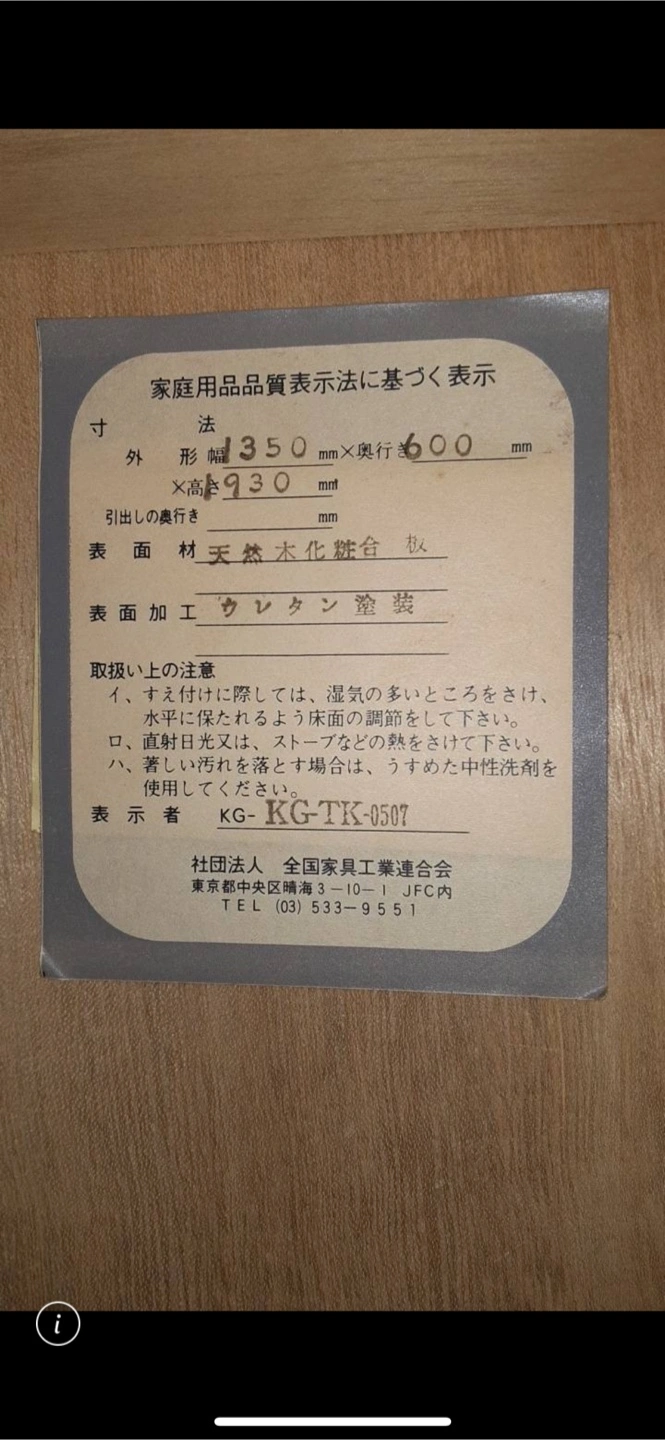 家庭用品品質表示法に基づく表示
寸 法
外 形 幅 1350 mm×奥行き 600 mm
×高さ 1930 mm
引出しの奥行き mm
表 面 材 天然木化粧合板
表面加工 ウレタン塗装
取扱い上の注意
イ、すえ付けに際しては、湿気の多いところをさけ、
水平に保たれるよう床面の調節をして下さい。
ロ、直射日光又は、ストーブなどの熱をさけて下さい。
ハ、著しい汚れを落とす場合は、うすめた中性洗剤を
使用してください。
表 示 者 KG- KG-TK-0507
社団法人 全国家具工業連合会
東京都中央区晴海3-10-1 JFC内
TEL (03) 533-9551
i